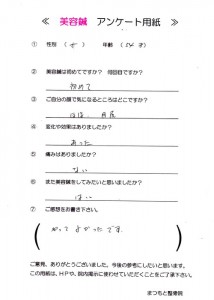 ≪ 美容鍼 アンケート用紙 ≫
① 性別 ( 女 ) 年齢 ( 54 才 )
② 美容鍼は初めてですか？ 何回目ですか？
初めて
③ ご自分の顔で気になるところはどこですか？
ほほ、目尻
④ 変化や効果はありましたか？
あった
⑤ 痛みはありましたか？
ない
⑥ また美容鍼をしてみたいと思いましたか？
はい
⑦ ご感想をお書き下さい。
( やって よかった です。 )
ご意見、ありがとうございました。今後の参考にしたいと思います。
この用紙は、ＨＰや、院内掲示に使わせていただくことをご了承下さい。
まつもと整骨院